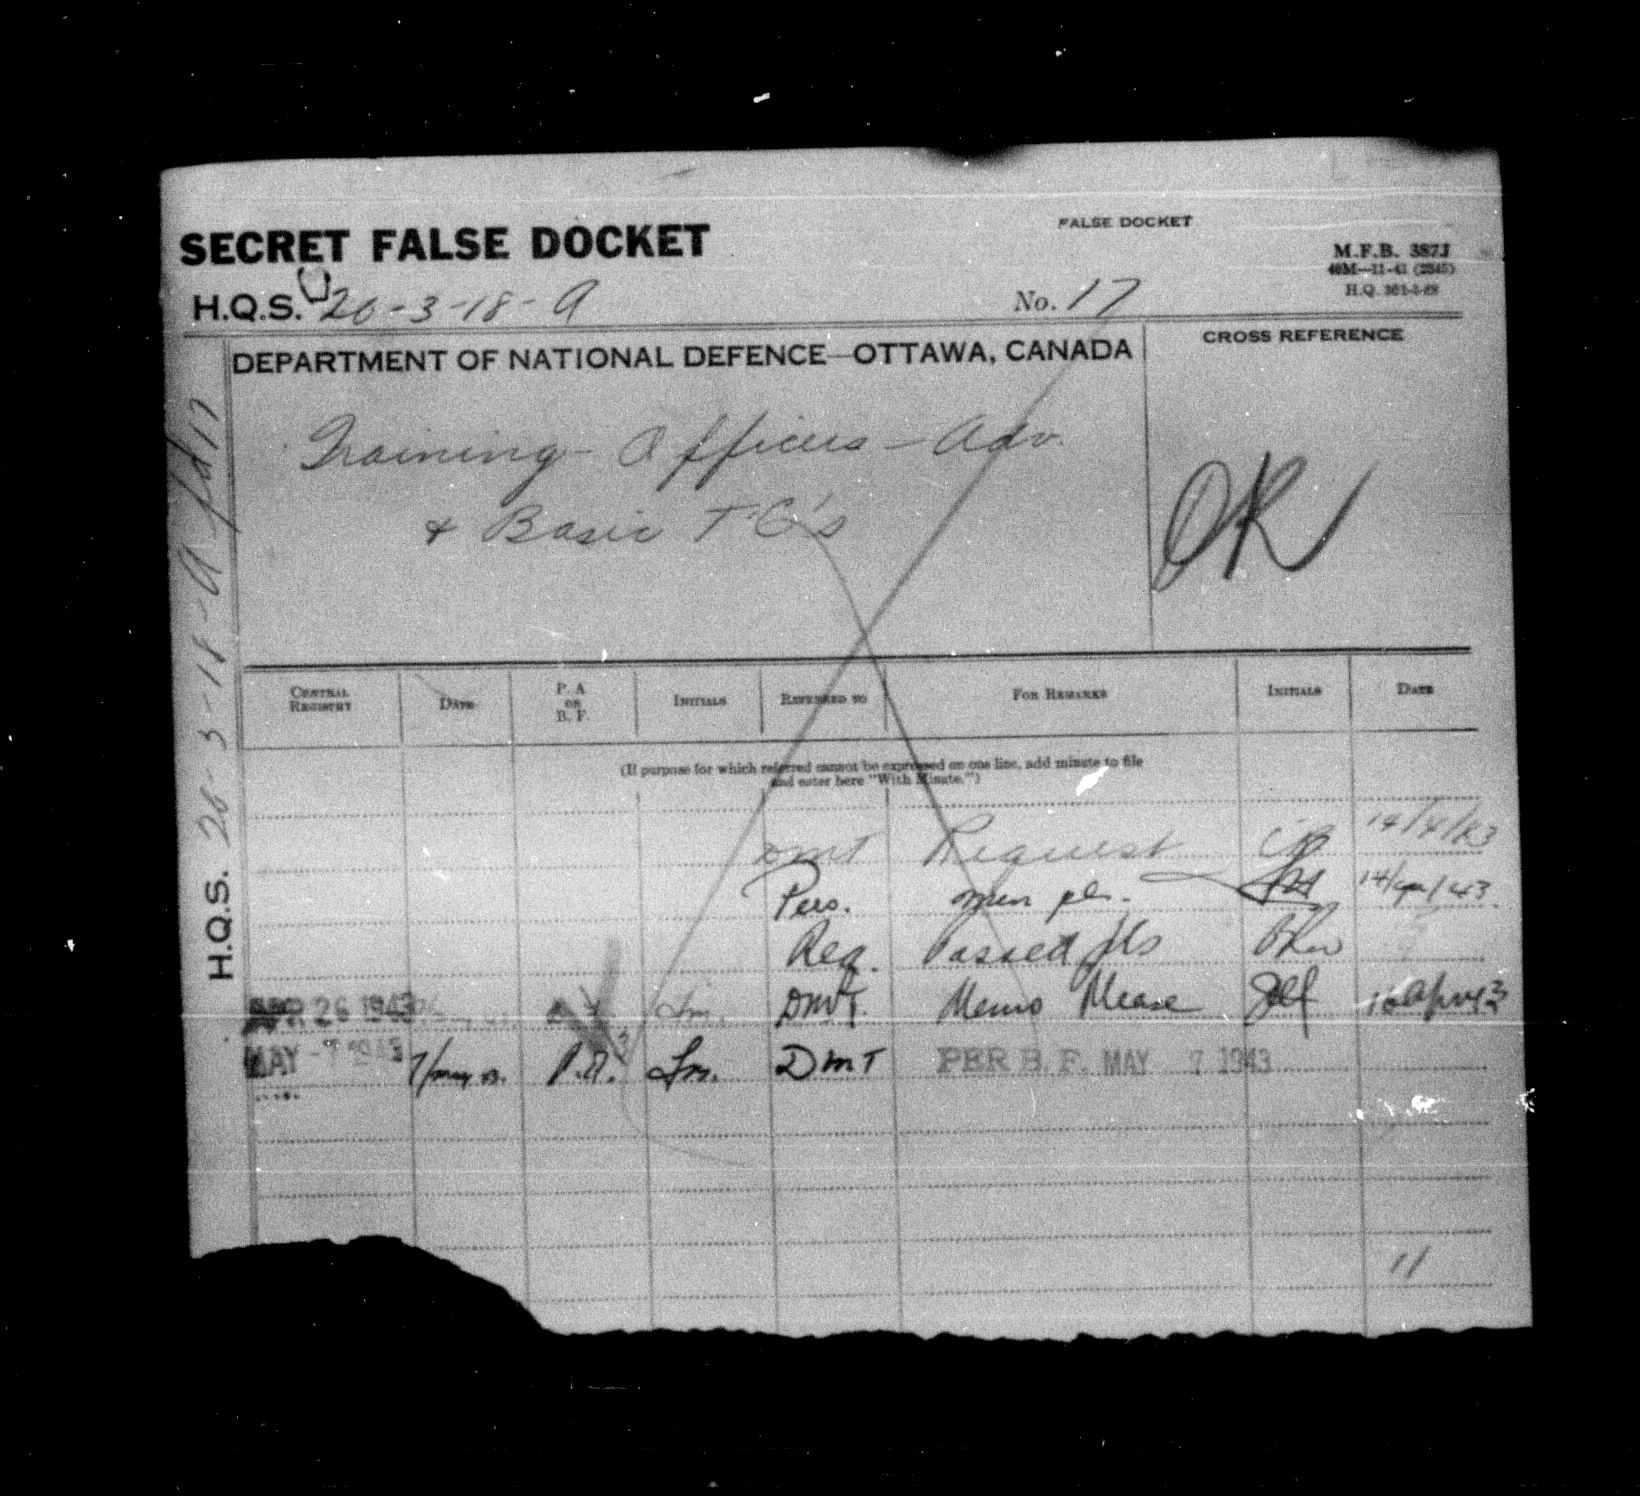 FALSE DOCKET
SECRET FALSE DOCKET
M.F.B. 387J
40M—11-41 (2345)
H.Q.S. 20-3-18-A
No. 17
DEPARTMENT OF NATIONAL DEFENCE—OTTAWA, CANADA
CROSS REFERENCE
Training - Officers - Adv.
& Basic T.C's
OK
H.Q.S. 20-3-18-A fd 17
CENTRAL REGISTRY DATE P. A. OR B. F. INITIALS REFERRED TO FOR REMARKS INITIALS DATE
(If purpose for which referred cannot be expressed on one line, add minute to file
and enter here "With Minute.")
DMT Request 14/4/43
Pers. 14/Apr/43
Reg. Passed
APR 26 1943 DMT. Memo Please
MAY -7 1943 7/May P.A. DMT PER B. F. MAY 7 1943
11